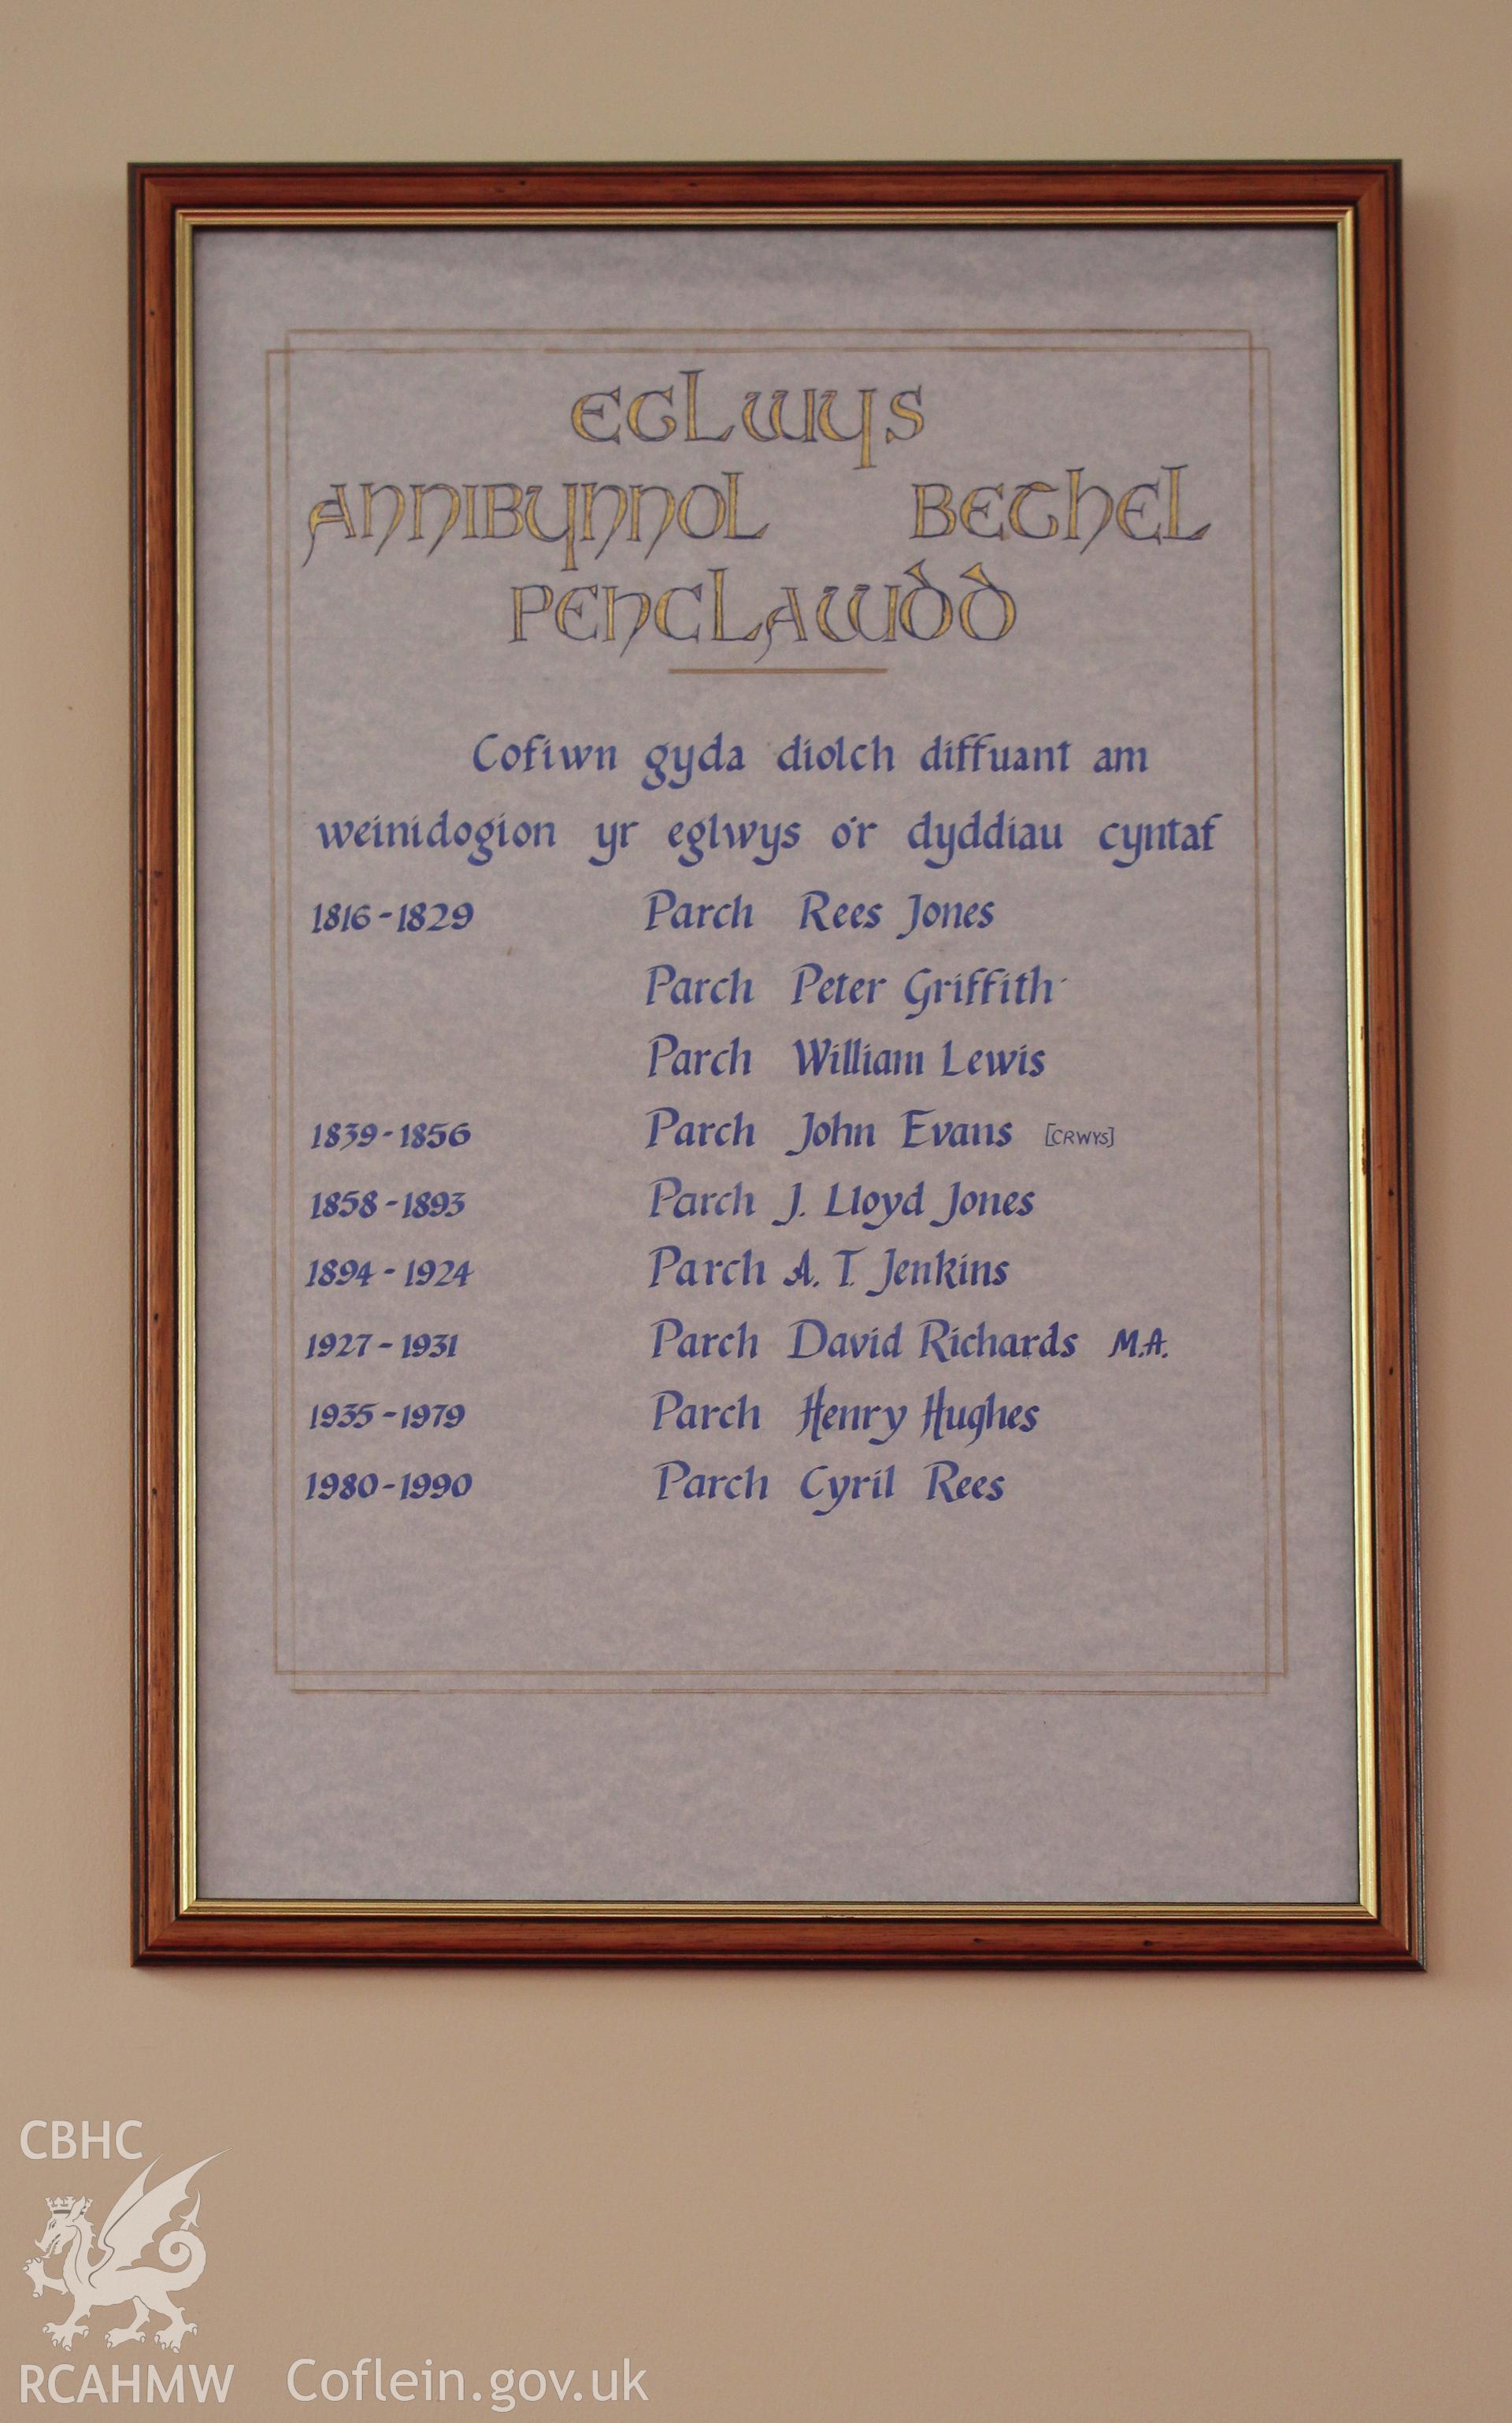 EGLWYS
ANNIBYNNOL BETHEL
PENCLAWDD
Cofiwn gyda diolch diffuant am
weinidogion yr eglwys o'r dyddiau cyntaf
1816-1829 Parch Rees Jones
Parch Peter Griffith
Parch William Lewis
1839-1856 Parch John Evans [CRWYS]
1858-1893 Parch J. Lloyd Jones
1894-1924 Parch A. T. Jenkins
1927-1931 Parch David Richards M.A.
1935-1979 Parch Henry Hughes
1980-1990 Parch Cyril Rees
CBHC
RCAHMW Coflein.gov.uk